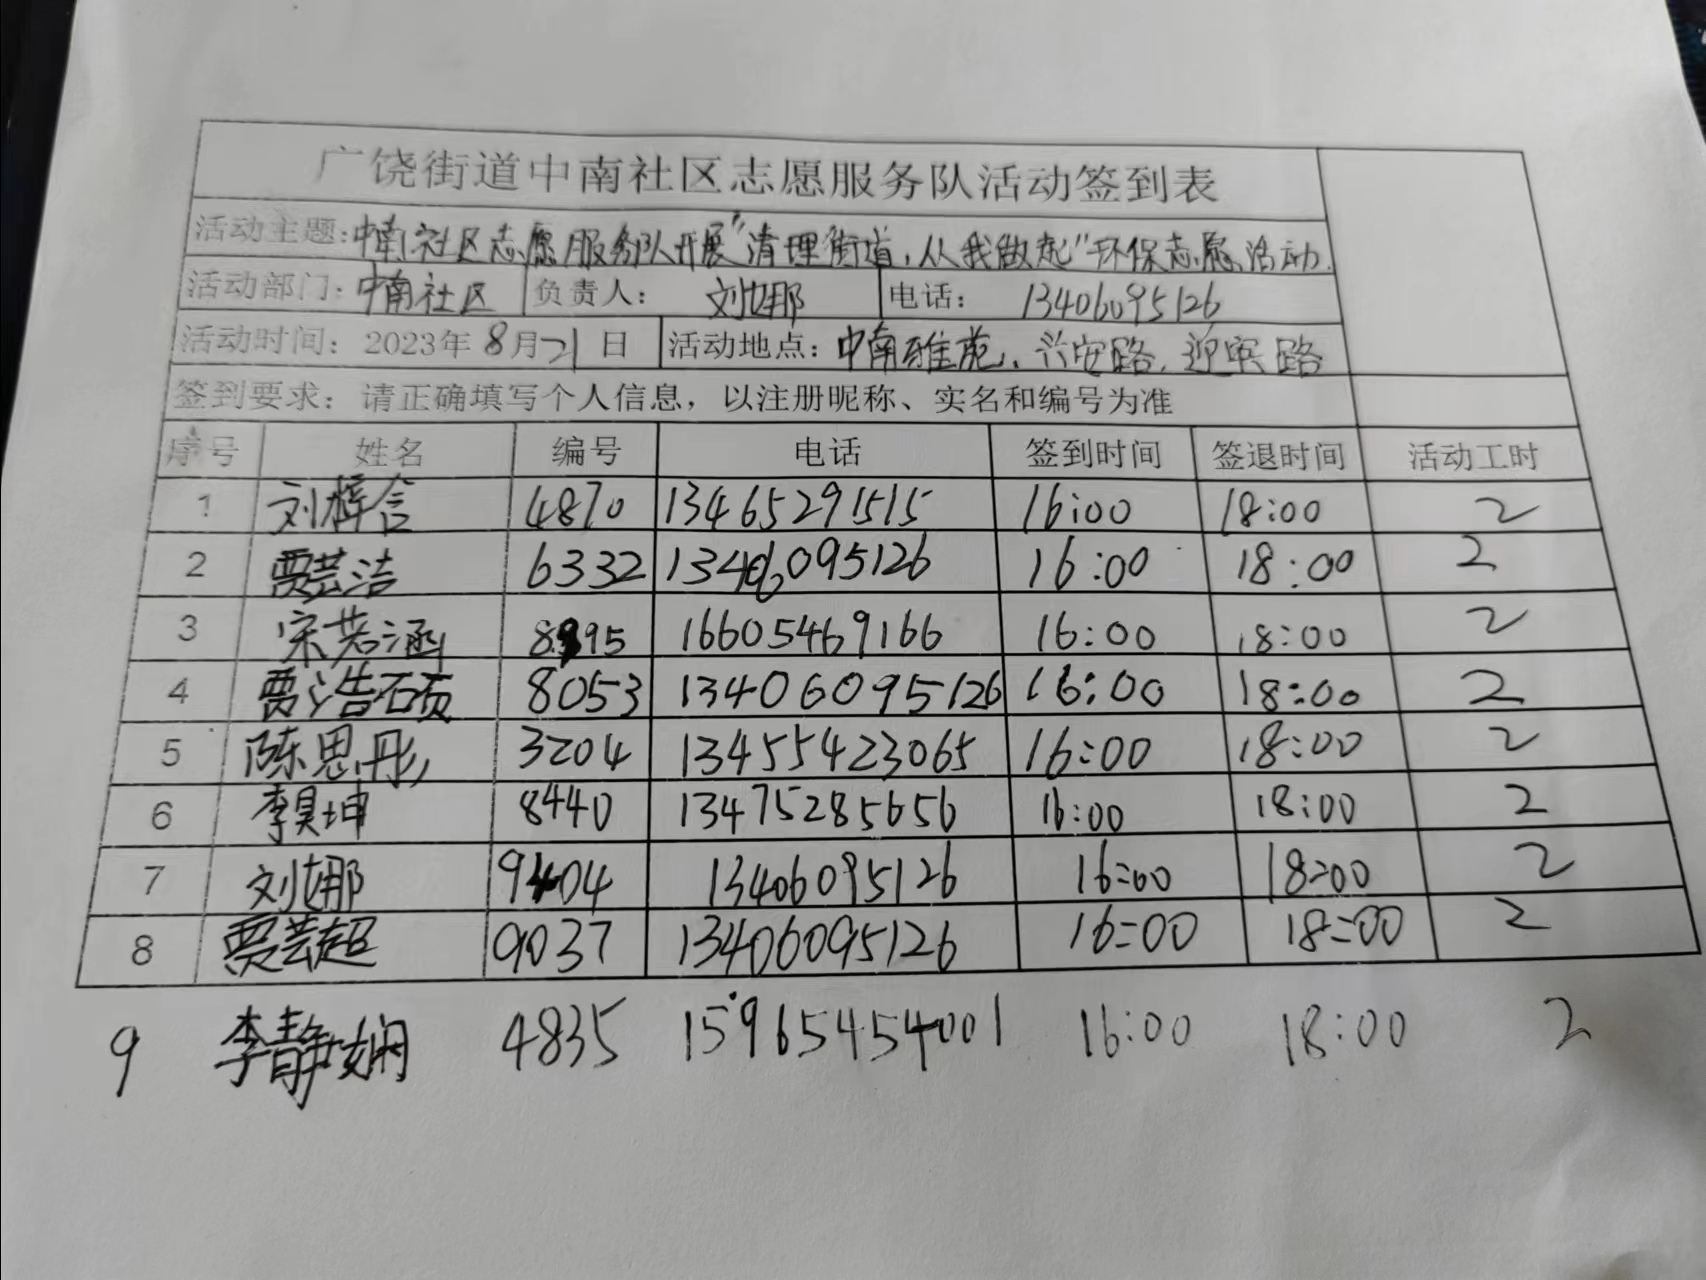 广饶街道中南社区志愿服务队活动签到表
活动主题:中南社区志愿服务队开展"清理街道,从我做起"环保志愿活动.
活动部门:中南社区 负责人: 刘娜 电话: 13406095126
活动时间: 2023年8月21日 活动地点:中南雅苑、兴安路,迎宾路
签到要求: 请正确填写个人信息,以注册昵称、实名和编号为准
序号 姓名 编号 电话 签到时间 签退时间 活动工时
1 刘梓含 4870 13465291515 16:00 18:00 2
2 贾芸洁 6332 13406095126 16:00 18:00 2
3 宋若涵 8995 16605469166 16:00 18:00 2
4 贾浩硕 8053 13406095126 16:00 18:00 2
5 陈思彤 3204 13455423065 16:00 18:00 2
6 李昊坤 8440 13475285656 16:00 18:00 2
7 刘娜 9404 13406095126 16:00 18:00 2
8 贾芸超 9037 13406095126 16:00 18:00 2
9 李静娴 4835 15965454001 16:00 18:00 2